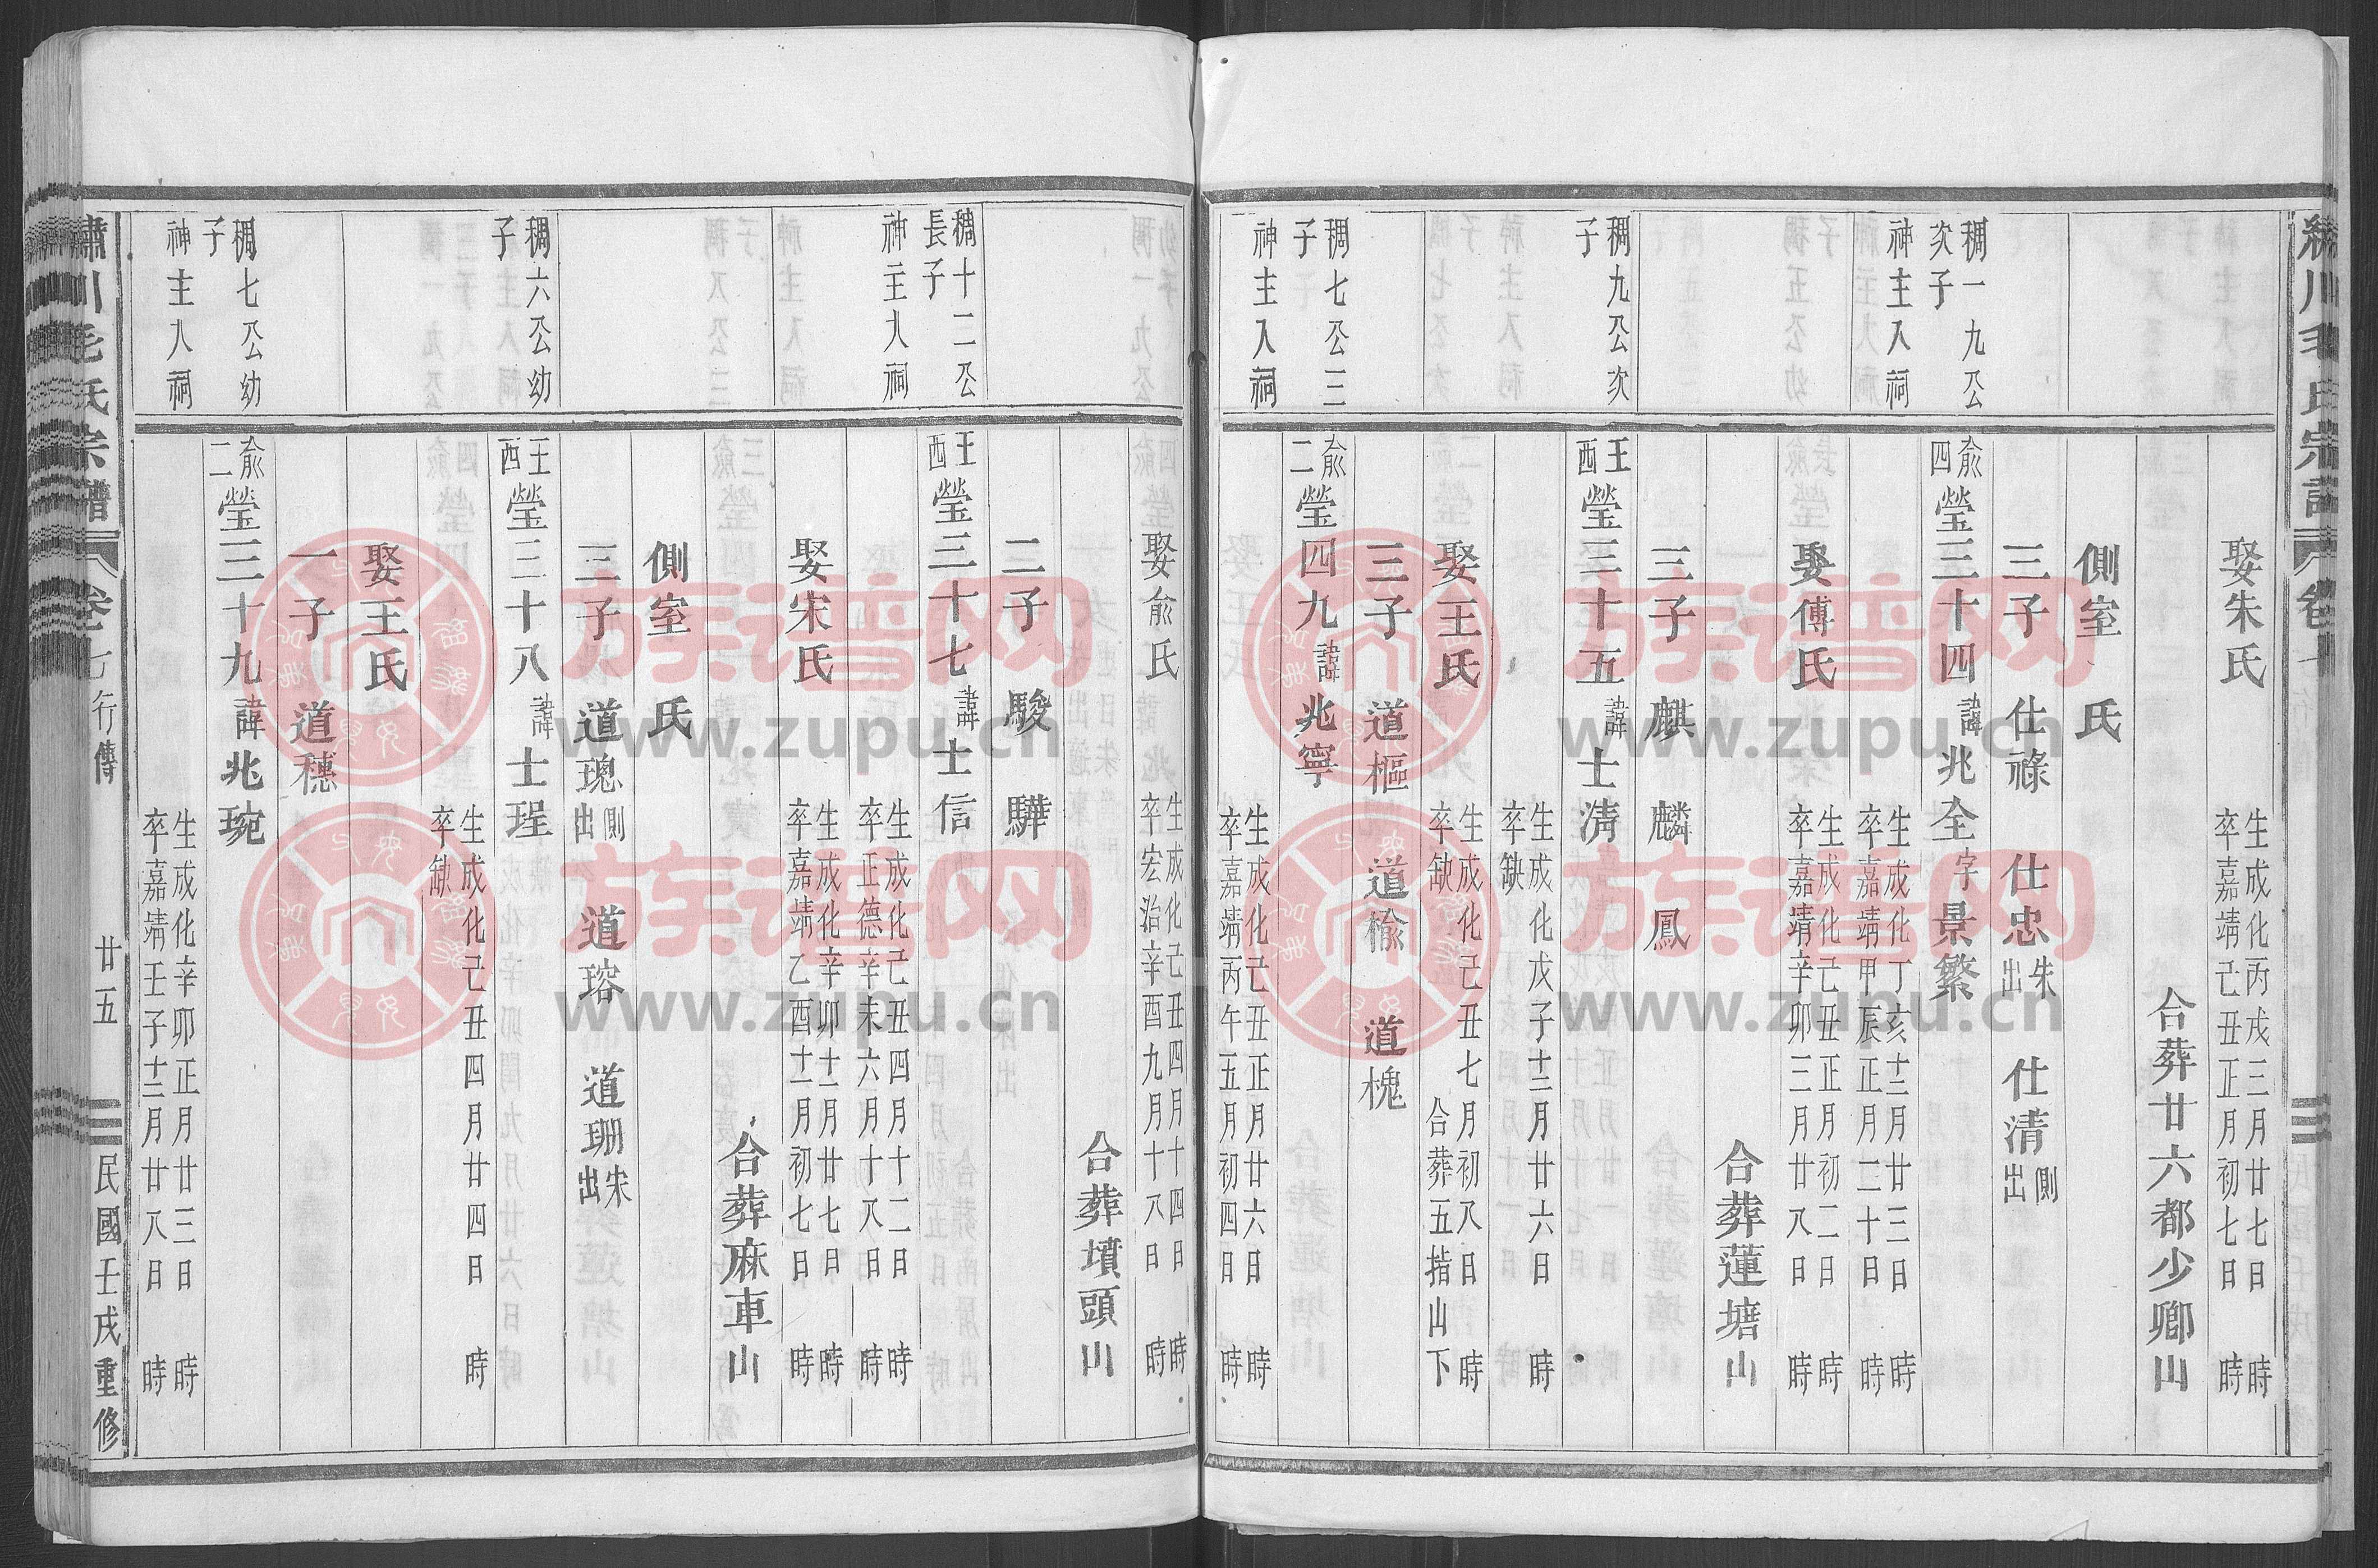 娶朱氏 生成化丙戌三月廿七日 時 卒嘉靖己丑正月初七日 時
合葬廿六都少卿山
側室 氏
三子 仕祿 仕忠朱出 仕清側出
稠一九公次子 神主入祠
俞四 瑩三十四 諱兆全 字景繁
生成化丁亥十二月廿三日 時 卒嘉靖甲辰正月二十日 時
娶傅氏 生成化己丑正月初二日 時 卒嘉靖辛卯三月廿八日 時
合葬蓮塘山
三子 麒 麟 鳳
稠九公次子
王西 瑩三十五 諱士淸
生成化戊子十二月廿六日 時 卒缺
娶王氏 生成化己丑七月初八日 時 卒缺 合葬五指山下
三子 道樞 道楡 道槐
稠七公三子 神主入祠
俞二 瑩四九 諱兆寧
生成化己丑正月廿六日 時 卒嘉靖丙午五月初四日 時
娶俞氏 生成化己丑四月十四日 時 卒宏治辛酉九月十八日 時
合葬墳頭山
二子 駿 驊
稠十二公長子 神主入祠
王西 瑩三十七 諱士信
生成化己丑四月十二日 時 卒正德辛未六月十八日 時
娶宋氏 生成化辛卯十二月廿七日 時 卒嘉靖乙酉十一月初七日 時
合葬麻車山
側室 氏
三子 道璁側出 道瑢 道珊宋出
稠六公幼子
王西 瑩三十八 諱士珵
生成化己丑四月廿四日 時 卒缺
娶王氏
一子 道穗
稠七公幼子 神主入祠
俞二 瑩三十九 諱兆琬
生成化辛卯正月廿三日 時 卒嘉靖壬子十二月廿八日 時
川毛氏宗譜 卷七 行傳 廿五 民國壬戌重修
族谱网
www.zupu.cn
族谱网
www.zupu.cn
族谱网
www.zupu.cn
族谱网
www.zupu.cn